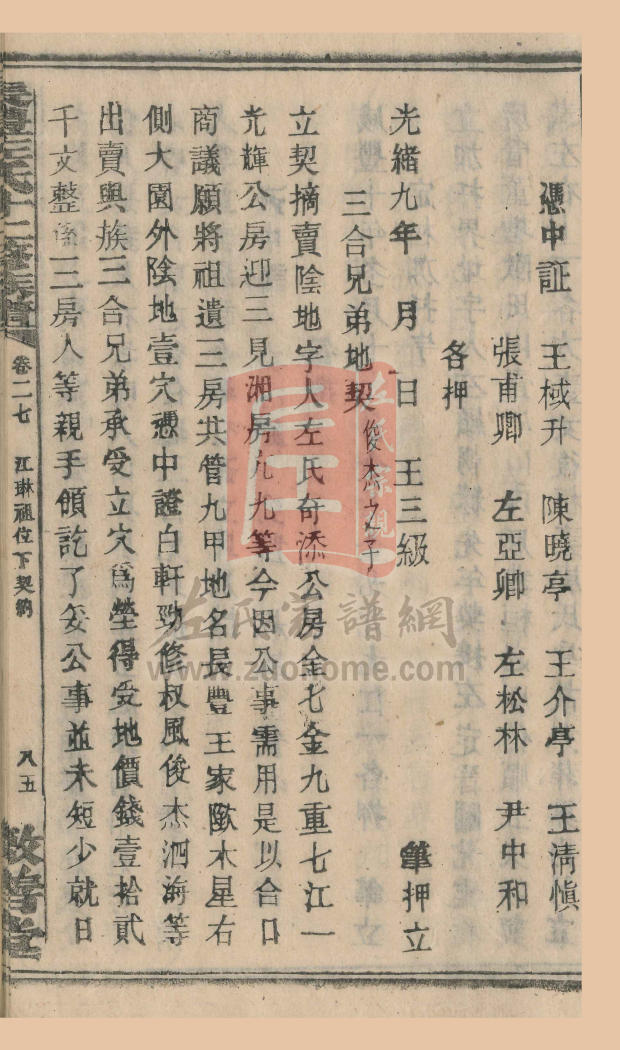 憑中証　王棫升　陳曉亭　王介亭　王淸愼
張甫卿　左亞卿　左松林　尹中和
各押
光緒九年　月　日　王三級　筆押立
三合兄弟地契俊杰之子
立契摘賣陰地字人左氏奇添公房金七金九重七江一
光輝公房迎三見湘房九九等今因公事需用是以合口
商議願將祖遺三房共管九甲地名長豐王家墩木星右
側大園外陰地壹穴憑中證白軒勁修权風俊杰泗海等
出賣與族三合兄弟承受立穴爲塋得受地價錢壹拾貳
千文整係三房人等親手領訖了妥公事並未短少就日
左氏十二修族譜
卷二七　江琳祖位下契約　八五
敦善堂
左氏宗譜網
www.zdohome.com